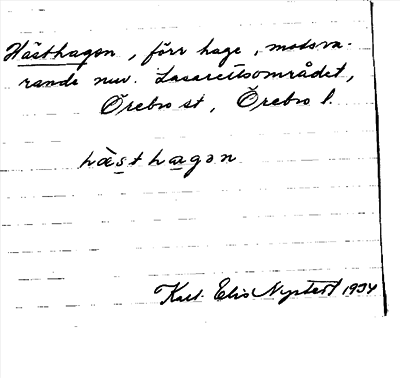 Hästhagen, förr hage, motsva-
rande nuv. Lasarettsområdet,
Örebro st, Örebro l.
hästhagən
Karl Elis Nystedt 1934